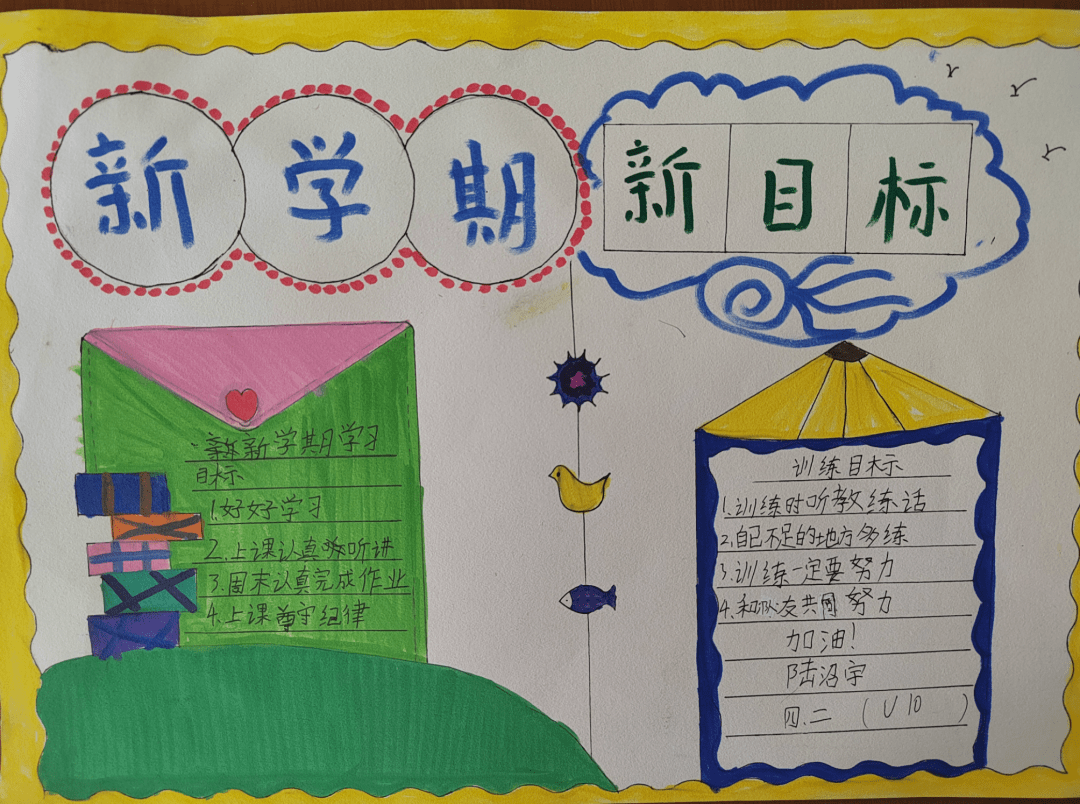 新学期
新目标
新学期学习
目标
1.好好学习
2.上课认真听讲
3.周末认真完成作业
4.上课尊守纪律
训练目标
1.训练时听教练话
2.自己不足的地方多练
3.训练一定要努力
4.和队友共同努力
加油!
陆沼宇
四.二 (U10 )